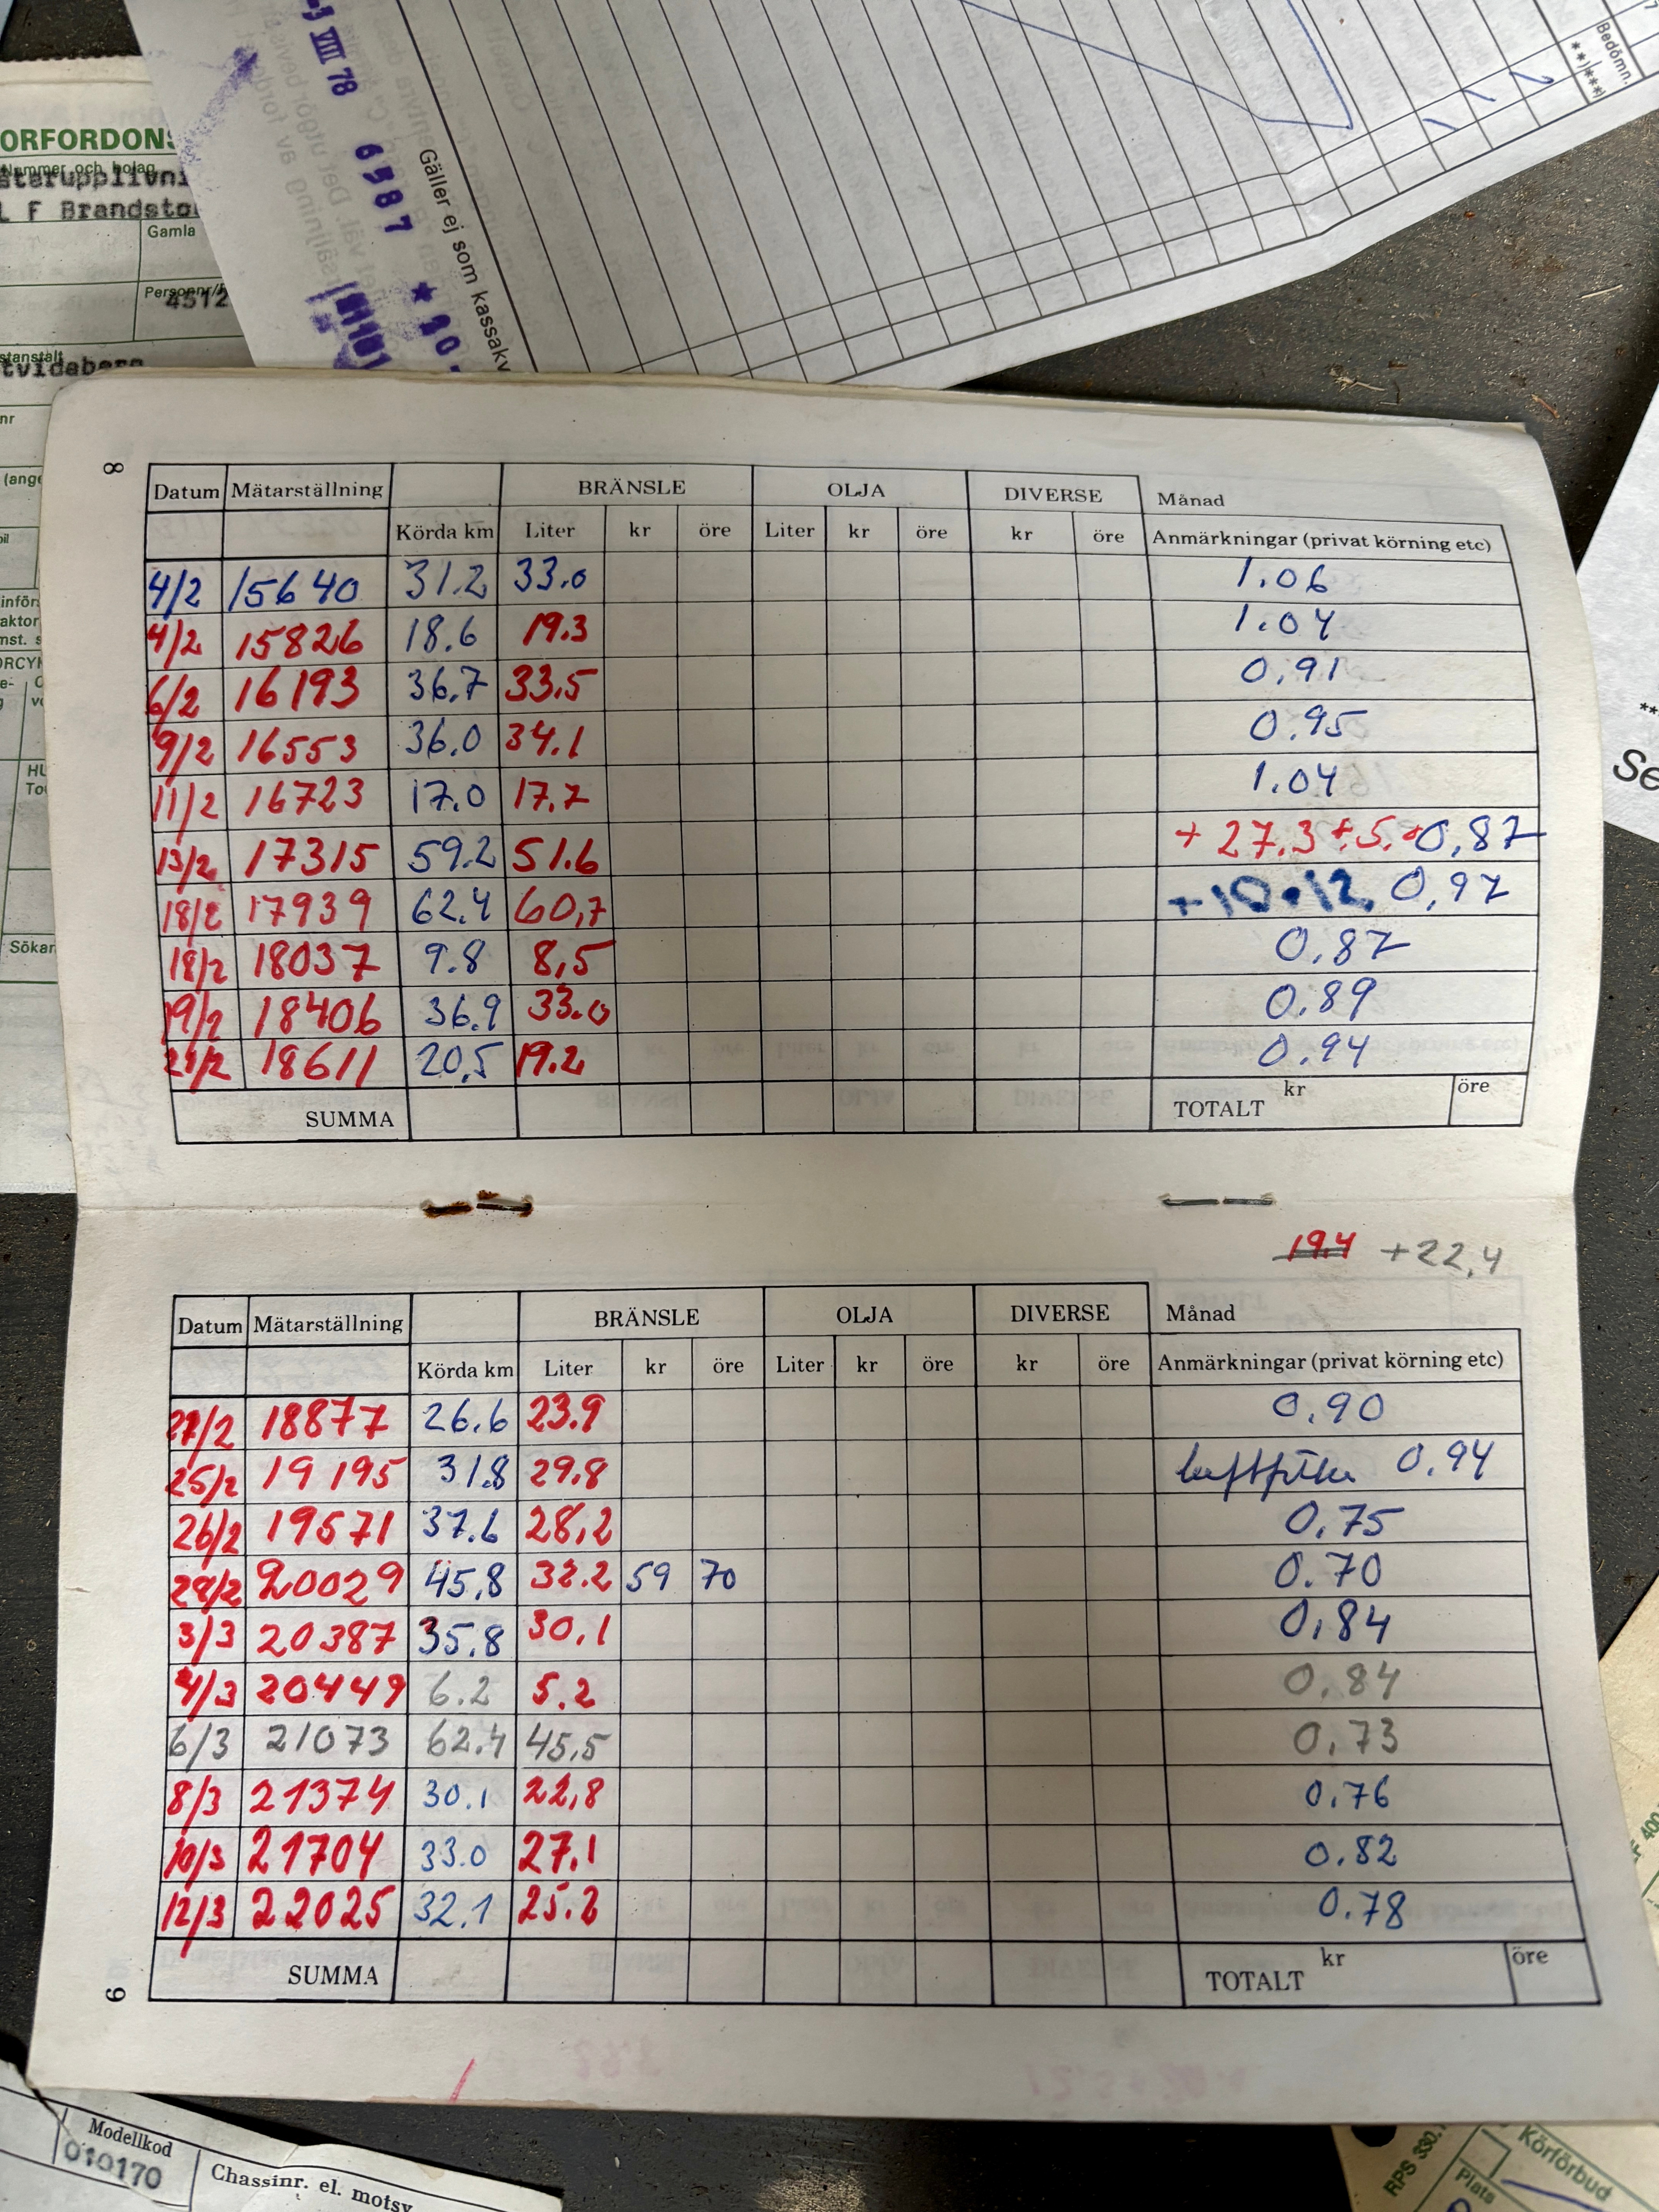 -3 VIII 78
6987
★ 40.
Gäller ej som kassakv
Bedömn.
**)***)
ORFORDONS
Nummer och bolag
L F Brandsto
Gamla
Personnr/
4512
stanstalt
tvidaberg
nr
(ange
Sökar
Se
8
Datum Mätarställning BRÄNSLE OLJA DIVERSE Månad
Körda km Liter kr öre Liter kr öre kr öre Anmärkningar (privat körning etc)
4/2 15640 31.2 33.0 1.06
4/2 15826 18.6 19.3 1.04
6/2 16193 36.7 33.5 0,91
9/2 16553 36.0 34.1 0.95
11/2 16723 17.0 17.7 1.04
13/2 17315 59.2 51.6 + 27.3 + 5. 0,87
18/2 17939 62.4 60,7 +10+12, 0,97
18/2 18037 9.8 8,5 0.87
19/2 18406 36.9 33.0 0.89
21/2 18611 20,5 19.2 0.94
SUMMA TOTALT kr öre
19.4 +22,4
Datum Mätarställning BRÄNSLE OLJA DIVERSE Månad
Körda km Liter kr öre Liter kr öre kr öre Anmärkningar (privat körning etc)
21/2 18877 26.6 23.9 0.90
25/2 19195 31.8 29.8 luftfilter 0.94
26/2 19571 37.6 28,2 0.75
28/2 20029 45.8 32.2 59 70 0.70
3/3 20387 35.8 30,1 0,84
4/3 20449 6.2 5.2 0.84
6/3 21073 62.4 45,5 0,73
8/3 21374 30.1 22,8 0.76
10/3 21704 33.0 27,1 0.82
12/3 22025 32.1 25.2 0.78
SUMMA TOTALT kr öre
9
Modellkod
010170
Chassinr. el. motsv
RPS 330.
Körförbud
Plats